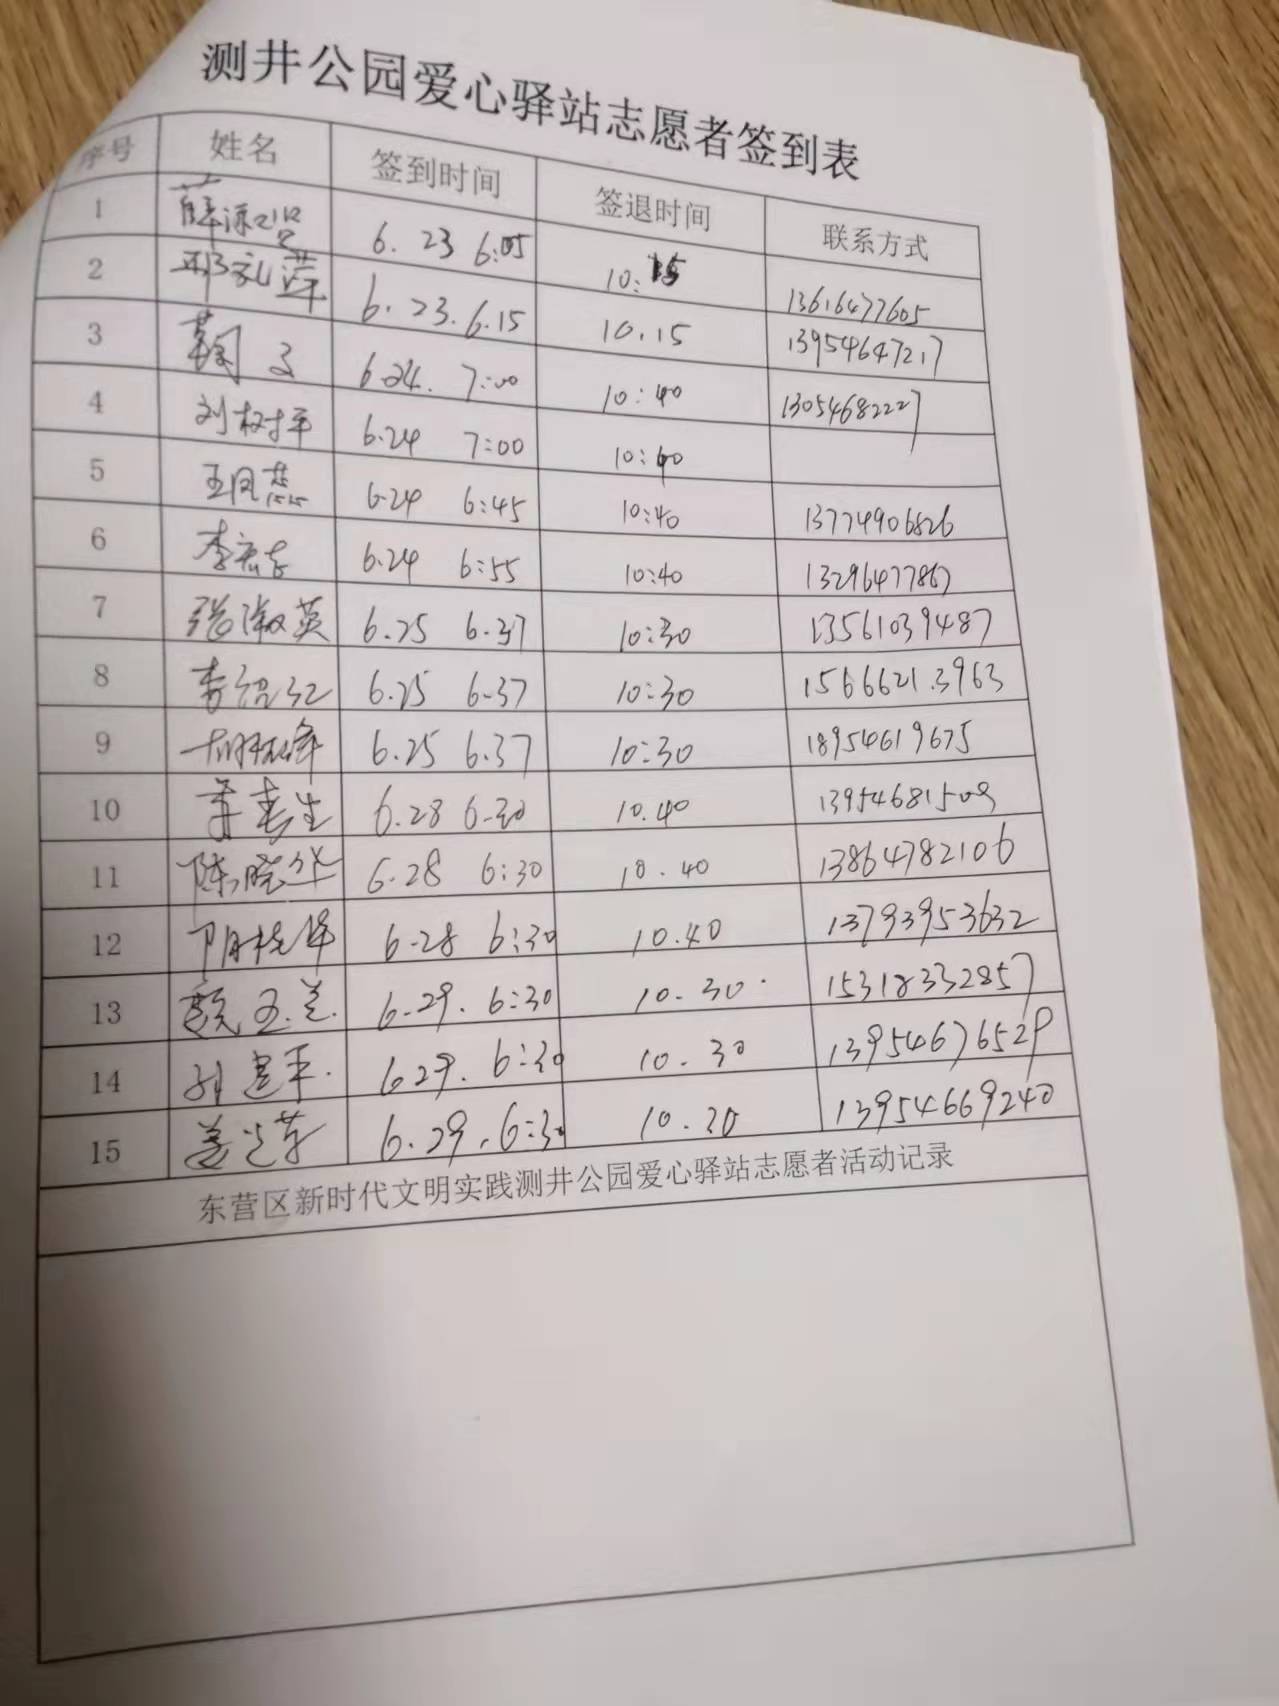 测井公园爱心驿站志愿者签到表
序号 姓名 签到时间 签退时间 联系方式
1 薛 6.23 6:05 10:15 13616477605
2 邢礼萍 6.23.6.15 10.15 13954647217
3 6.24. 7:00 10:40 13054682227
4 刘树平 6.24 7:00 10:40
5 王凤燕 6.24 6:45 10:40 13774906826
6 李 6.24 6:55 10:40 13296477867
7 张淑英 6.25 6.37 10:30 13561039487
8 李绍红 6.25 6.37 10:30 1566621.3963
9 胡 6.25 6.37 10:30 18954619675
10 春生 6.28 6.30 10.40 13954681509
11 陈晓华 6.28 6:30 10.40 13864782106
12 6.28 6:30 10.40 13793953632
13 颜玉兰. 6.29. 6:30 10.30. 15318332857
14 刘建平. 6.29. 6:30 10.30 13954676529
15 姜兰芳 6.29.6:30 10.30 13954669240
东营区新时代文明实践测井公园爱心驿站志愿者活动记录